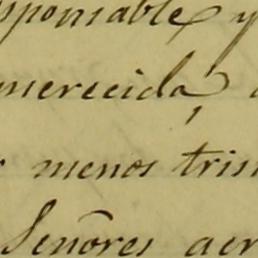 sponsable y
merecida,
menos tris
Señores